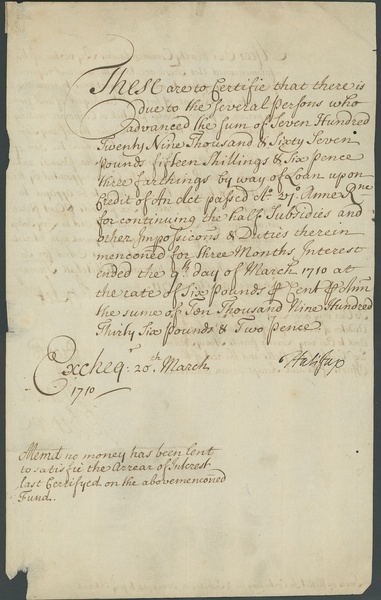 These are to Certifie that there is
due to the Several Persons who
advanced the sum of Seven Hundred
Twenty Nine Thousand & Sixty Seven
Pounds fifteen Shillings & Six pence
three farthings by way of Loan upon
Credit of An Act passed Ao. 2o. Annæ Rnæ
for continuing the half Subsidies and
other Imposicons & Duties therein
menconed for three Months Interest
ended the 9th. Day of March 1710 at
the rate of Six Pounds P Cent P Ann
the sume of Ten Thousand Nine Hundred
Thirty Six Pounds & Two pence.
Excheqr. 20th. March
1710
Halifax
Memd. no money has been lent
to satisfie the Arrear of Interest
last Certifyed on the abovemenconed
Fund.